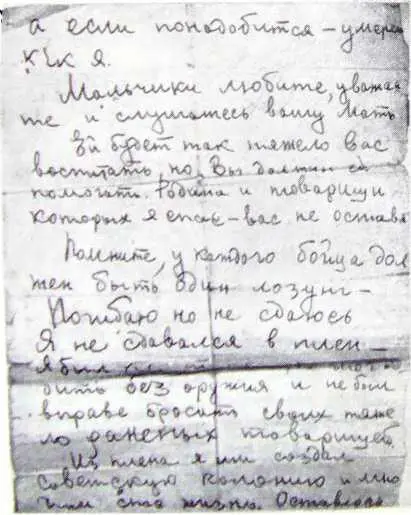 а если понадобится – умереть
как я.
Мальчики любите, уважай
те и слушайтесь вашу мать
Ей будет так тяжело вас
воспитать, но Вы должны ей
помогать. Родина и товарищи
которых я спас – вас не остав
Помните, у каждого бойца дол
жен быть один лозунг –
Погибаю но не сдаюсь
Я не сдавался в плен –
я был
бить без оружия и не был
вправе бросать своих тяже
ло раненых товарищей.
Из плена я создал
советскую и мно
жизнь.